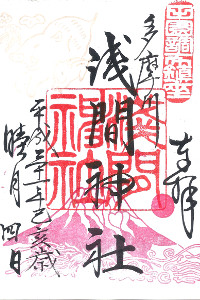 奉拝
多摩川
浅間神社
浅間
神社
平成三十一年己亥歳
睦月 四日